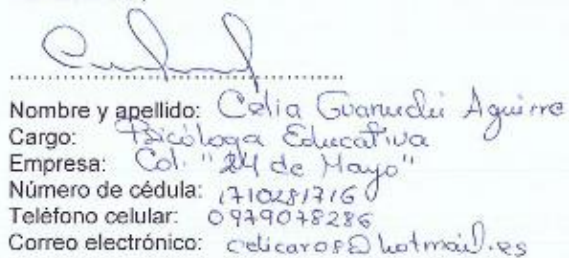 Nombre y apellido: Celia Guanuchi Aguirre
Cargo: Psicóloga Educativa
Empresa: Col. "24 de Mayo"
Número de cédula: 1710281716
Teléfono celular: 0979078286
Correo electrónico: celicaros@hotmail.es